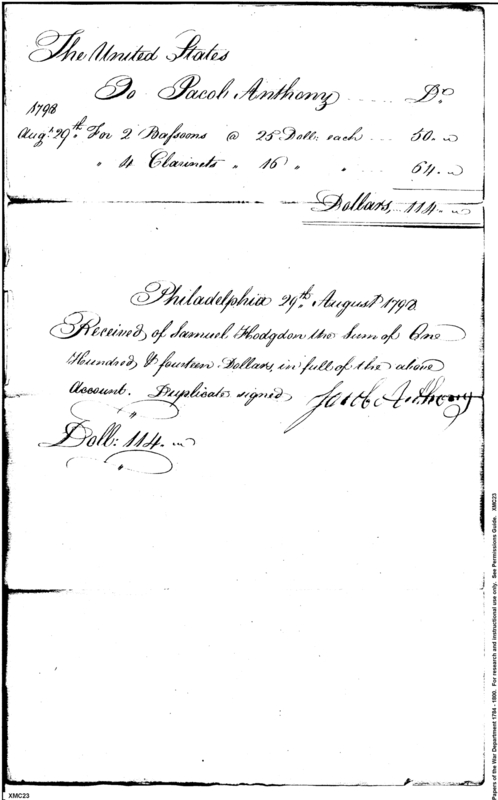 The United States
To Jacob Anthony Dr.
1798
Augt. 29th. For 2 Bassoons @ 25 Doll: each 50. "
" 4 Clarinets " 16 " " 64. "
Dollars, 114. "
Philadelphia 29th August 1798
Received, of Samuel Hodgdon the Sum of One
Hundred & fourteen Dollars, in full of the above
Account. Duplicates signed Jacob Anthony
"
Doll: 114. "
"
XMC23
Papers of the War Department 1784 - 1800. For research and instructional use only. See Permissions Guide. XMC23